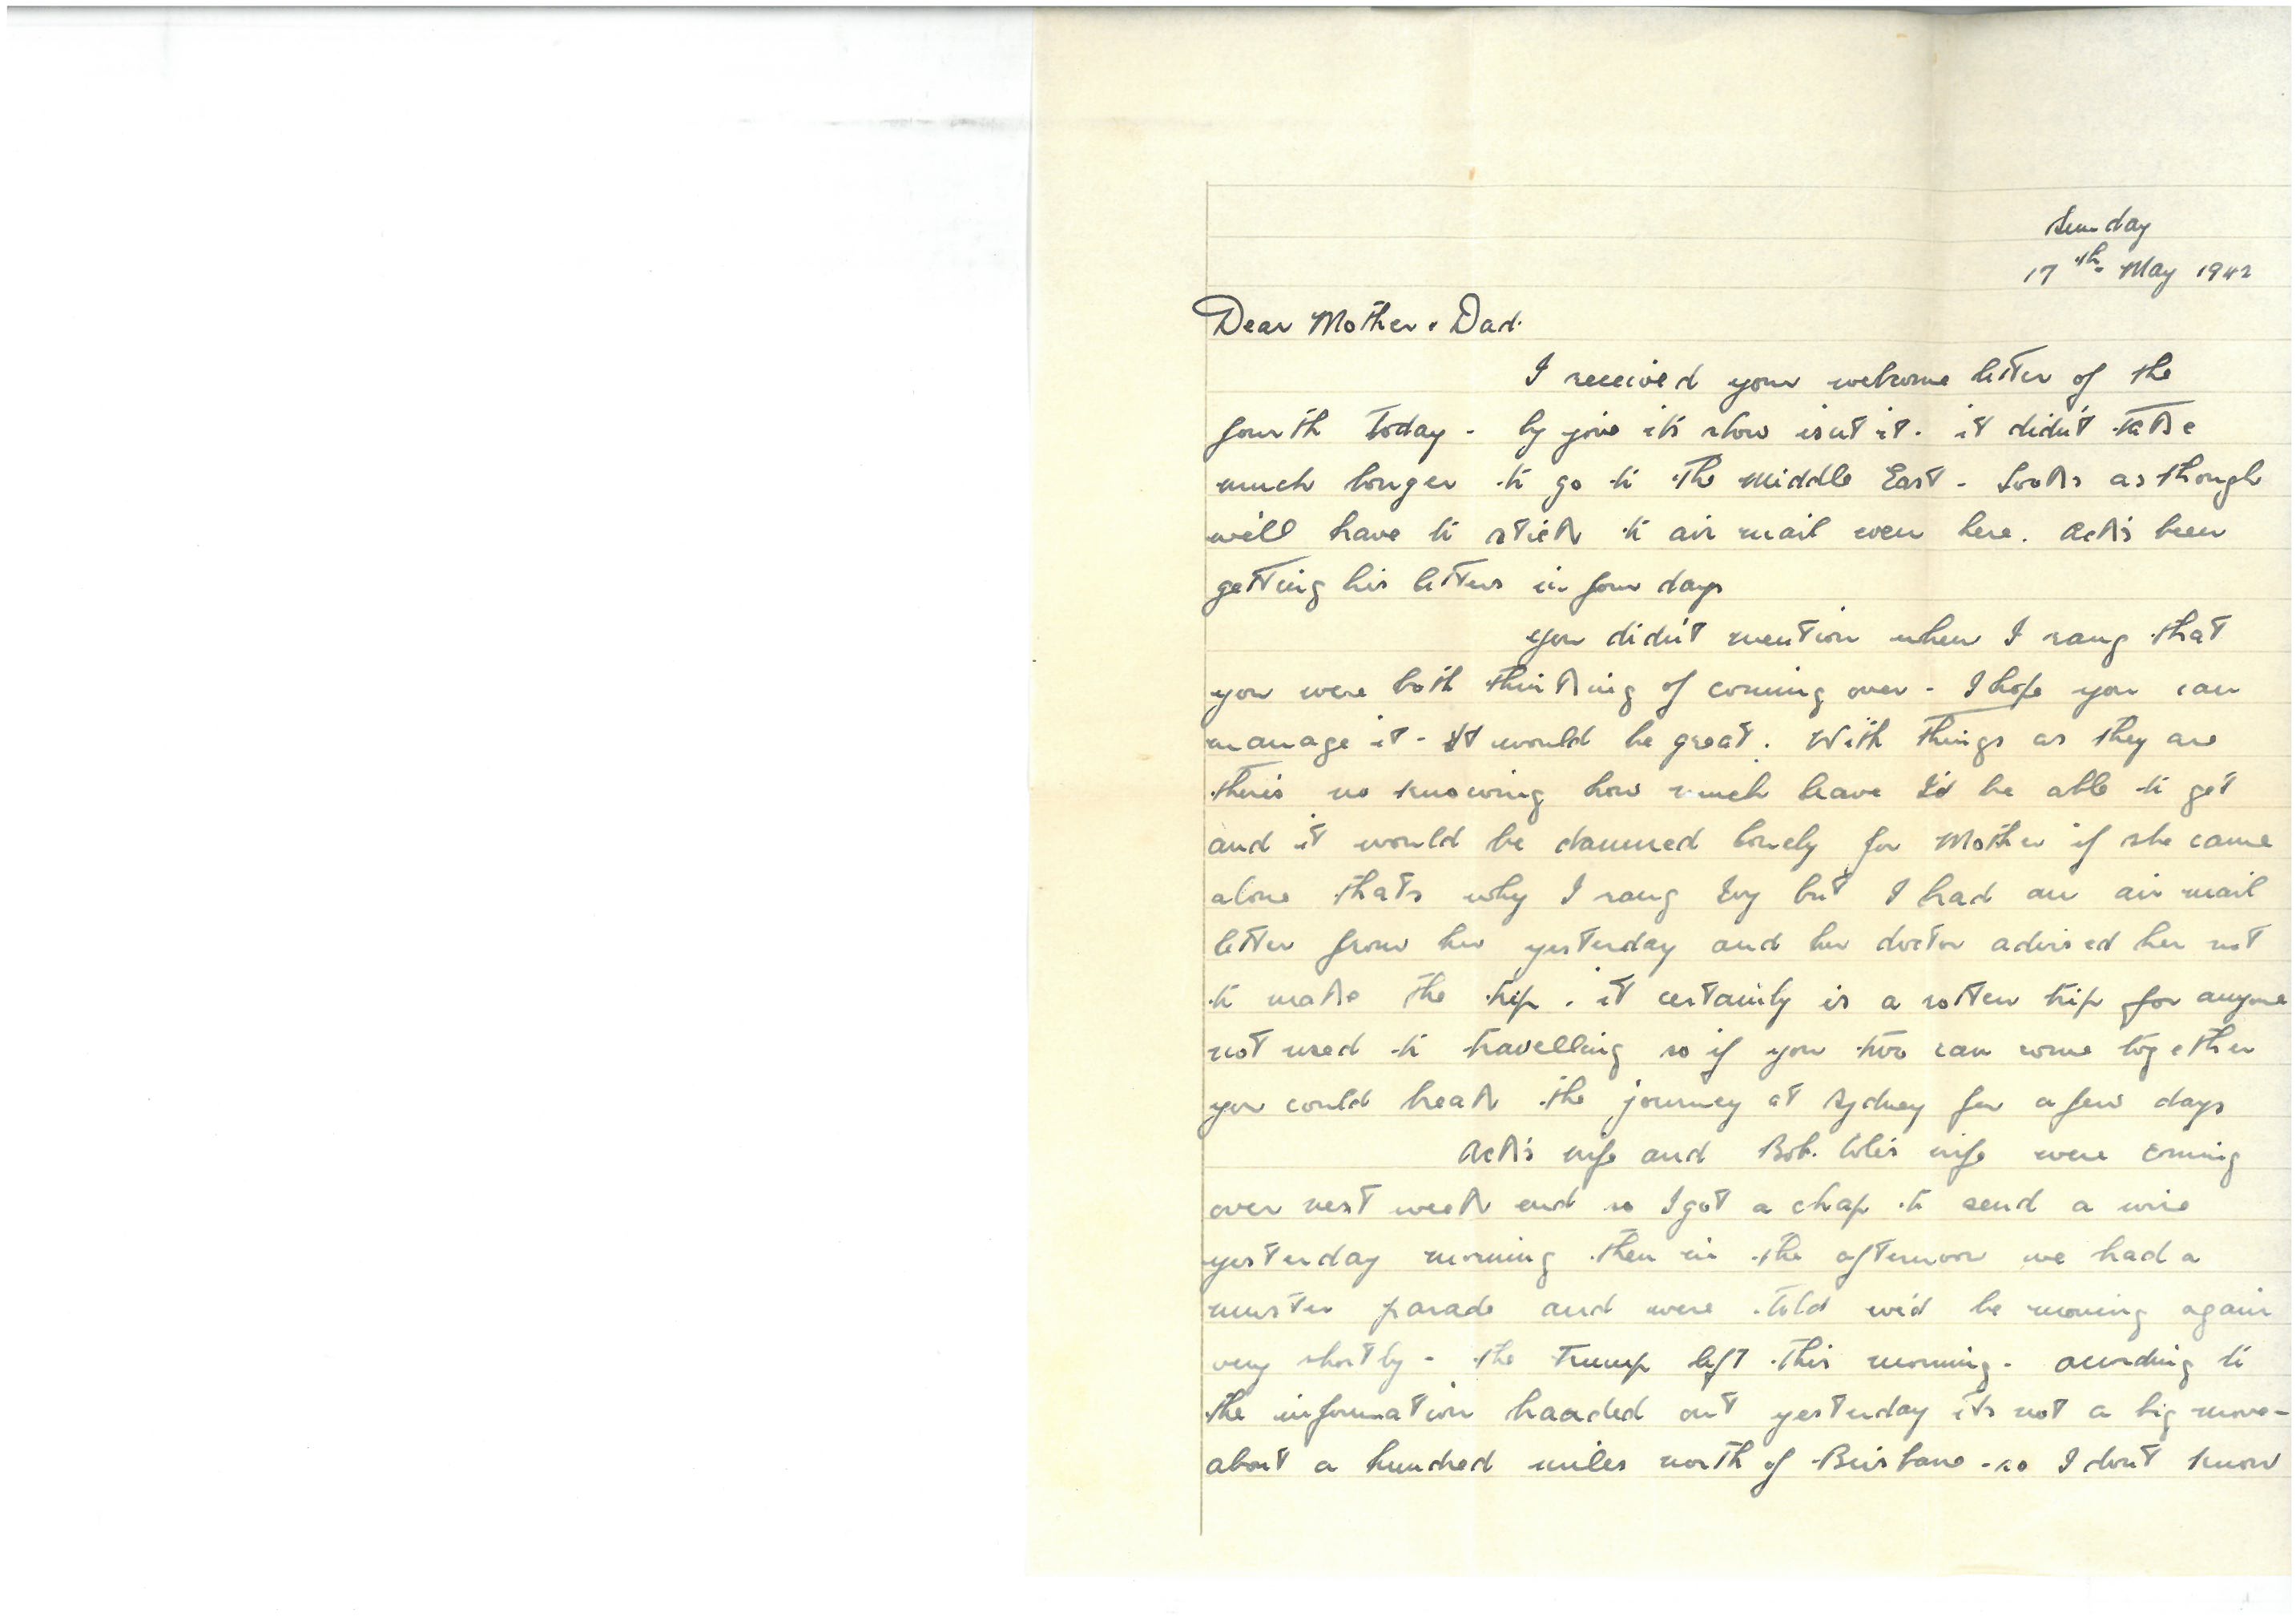 Sunday
17th May 1942
Dear Mother & Dad.
I received your welcome letter of the
fourth today - by jove its slow isnt it. it didn't take
much longer to go to the Middle East - Looks as though
we'll have to stick to air mail even here. Ack's been
getting his letters in four days
You didn't mention when I rang that
you were both thinking of coming over - I hope you can
manage it - It would be great. With things as they are
there's no knowing how much leave I'd be able to get
and it would be damned lonely for Mother if she came
alone thats why I rang Evy but I had an air mail
letter from her yesterday and her doctor advised her not
to make the trip. it certainly is a rotten trip for anyone
not used to travelling so if you two can come together
you could break the journey at Sydney for a few days
Ack's wife and Bob. wife were coming
over next week end so I got a chap to send a wire
yesterday morning then in the afternoon we had a
muster parade and were told we'd be moving again
very shortly - the left this morning. according to
the information handed out yesterday its not a big move -
about a hundred miles north of Brisbane - so I dont know